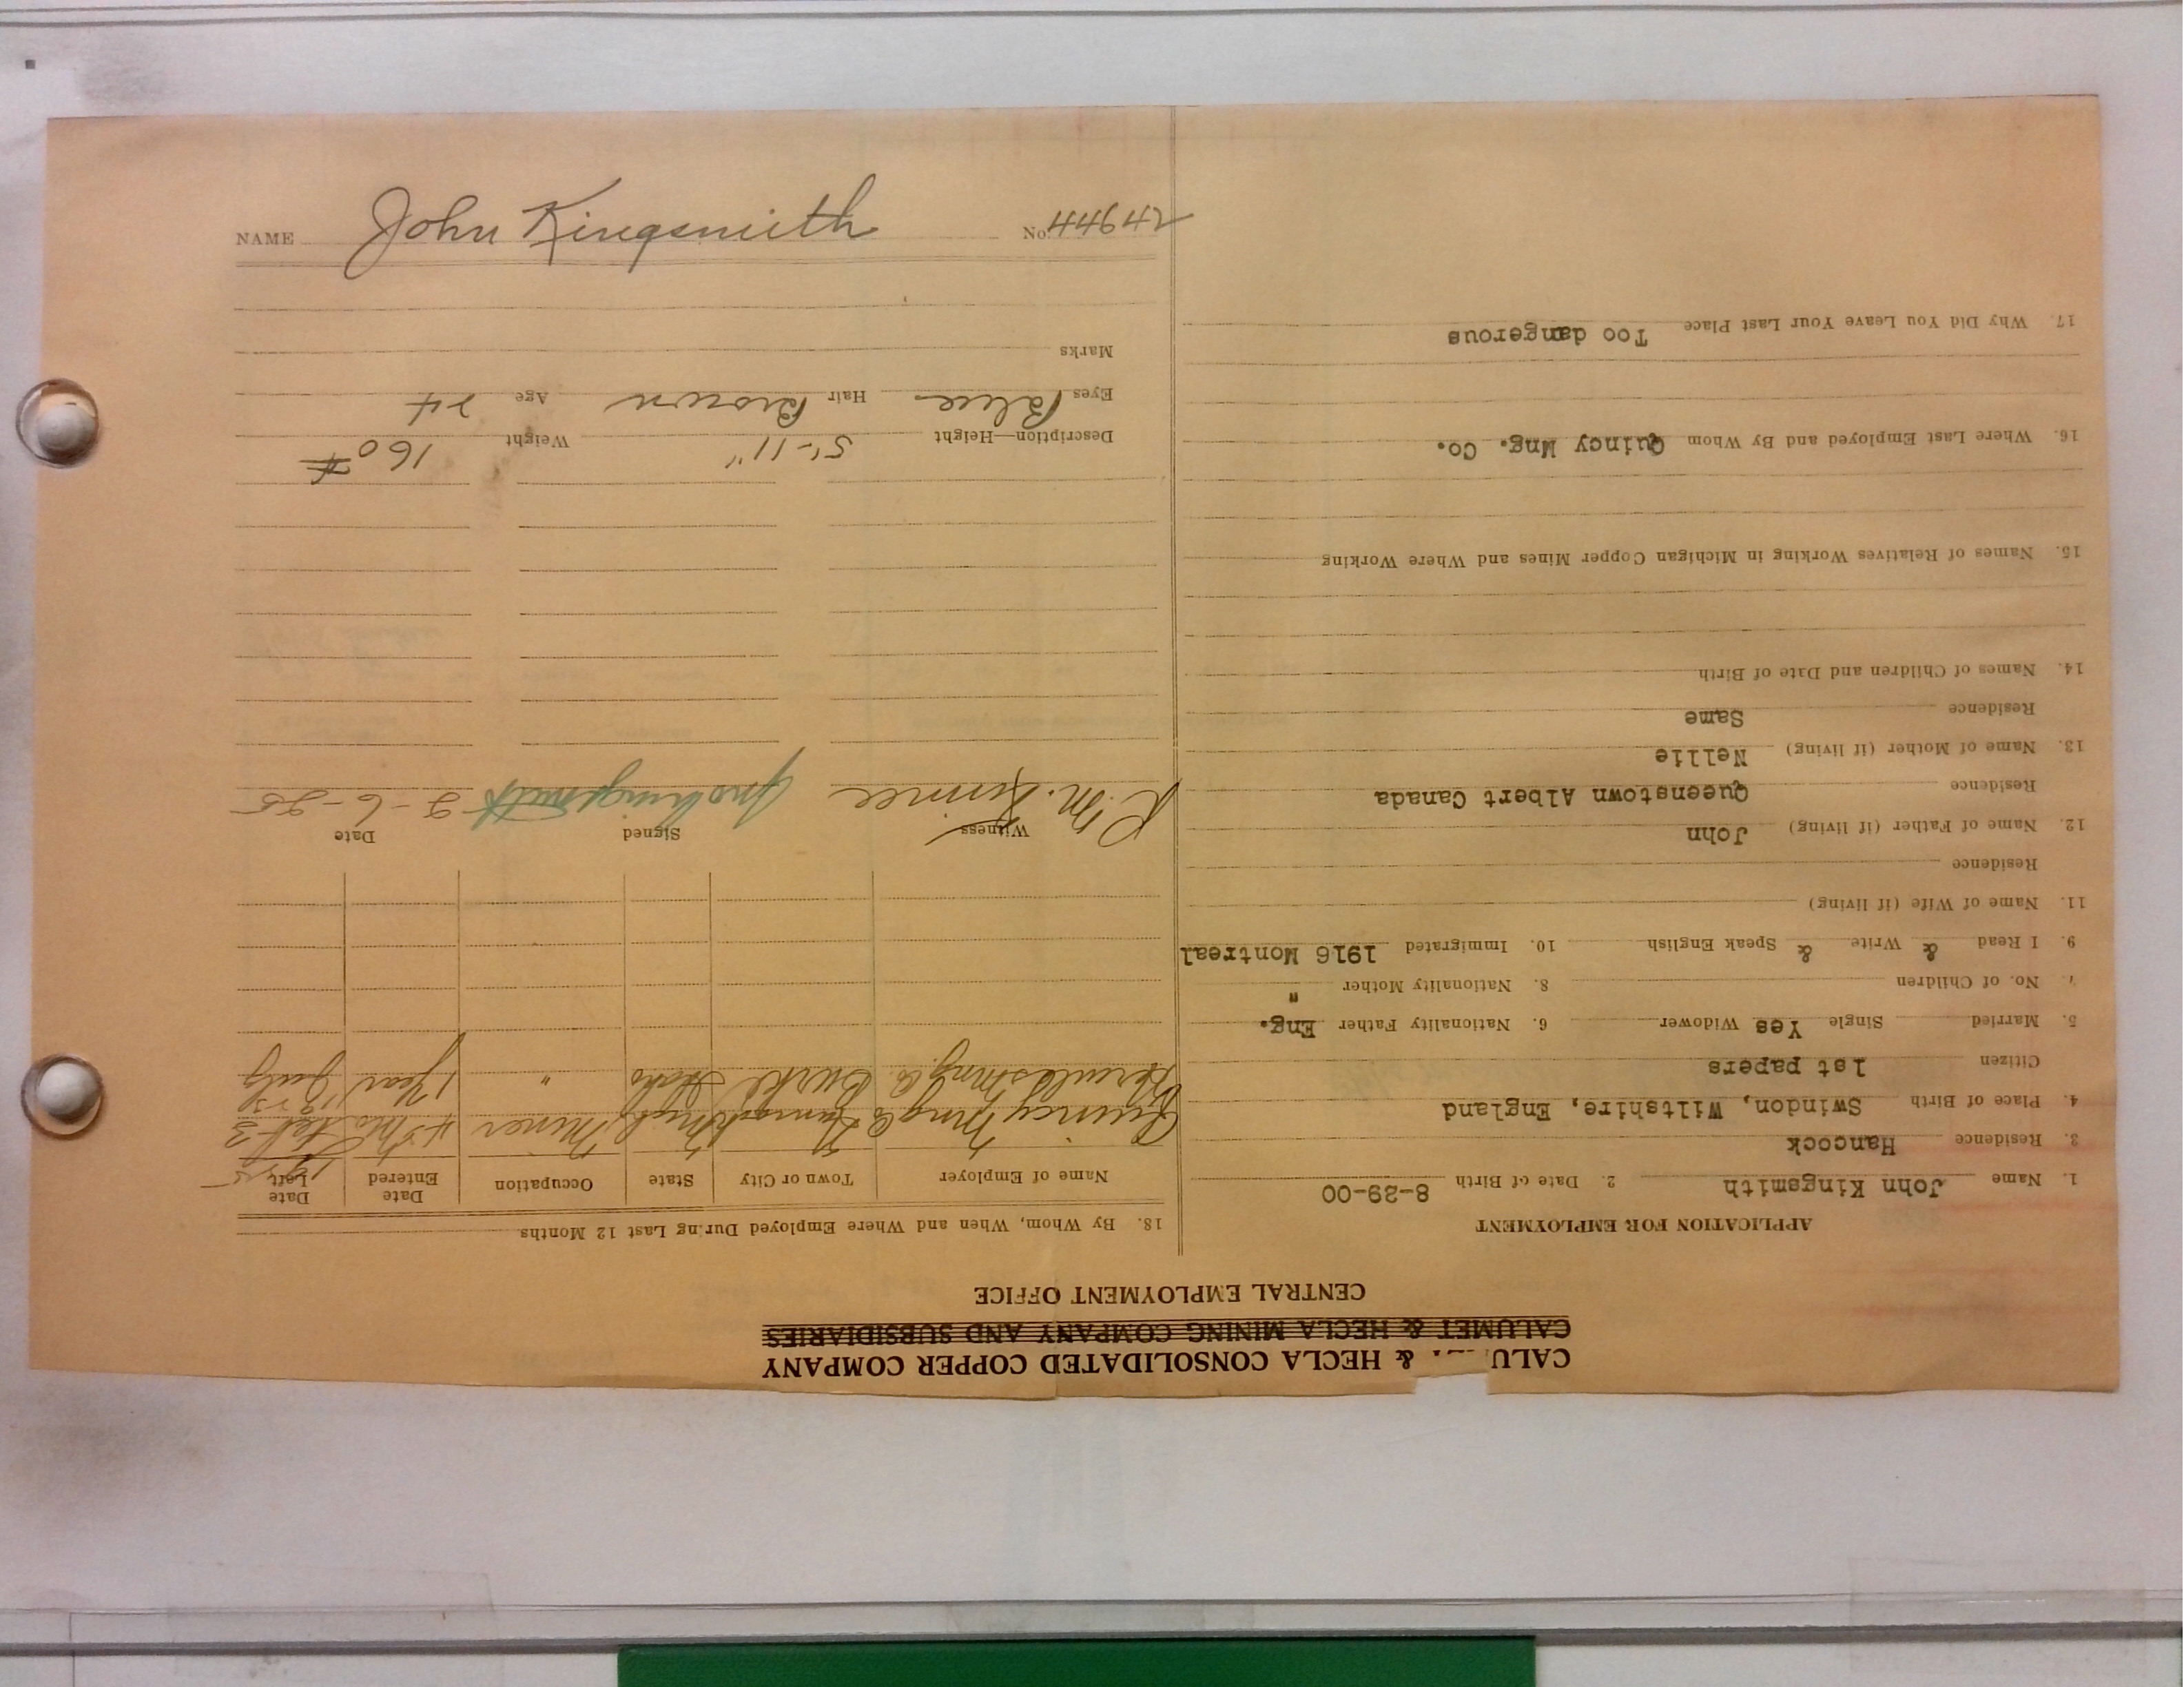 CALU & HECLA CONSOLIDATED COPPER COMPANY
CALUMET & HECLA MINING COMPANY AND SUBSIDIARIES
CENTRAL EMPLOYMENT OFFICE
APPLICATION FOR EMPLOYMENT
1. Name John Kingsmith 2. Date of Birth 8-29-00
3. Residence Hancock
4. Place of Birth Swindon, Wiltshire, England
Citizen 1st papers
5. Married Single Yes Widower 6. Nationality Father Eng.
7. No. of Children 8. Nationality Mother "
9. I Read & Write & Speak English 10. Immigrated 1916 Montreal
11. Name of Wife (if living)
Residence
12. Name of Father (if living) John
Residence Queenstown Albert Canada
13. Name of Mother (if living) Nellie
Residence Same
14. Names of Children and Date of Birth
15. Names of Relatives Working in Michigan Copper Mines and Where Working
16. Where Last Employed and By Whom Quincy Mng. Co.
17. Why Did You Leave Your Last Place Too dangerous
18. By Whom, When and Where Employed During Last 12 Months
Name of Employer Town or City State Occupation Date Entered Date Left
1925
Quincy Mng Co Hancock Mich Miner 4 Mo Feb 3
Hercules Mng Co. Burke Idaho " 1 Year July
Witness Signed Date
R. M. Jno Kingsmith 2-6-25
Description—Height 5'-11" Weight 160 #
Eyes Blue Hair Brown Age 24
Marks
NAME John Kingsmith No. 44944